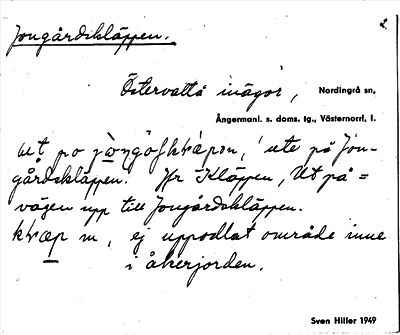 Jongårdskläppen.
2.
Östervattå inägor, Nordingrå sn,
Ångermanl. s. doms. tg., Västernorrl. l.
ute på Jon-
gårdskläppen. Hr Kläppen, Ut på =
vägen upp till Jongårdskläppen.
m, ej uppodlat område inne
i åkerjorden.
Sven Hiller 1949